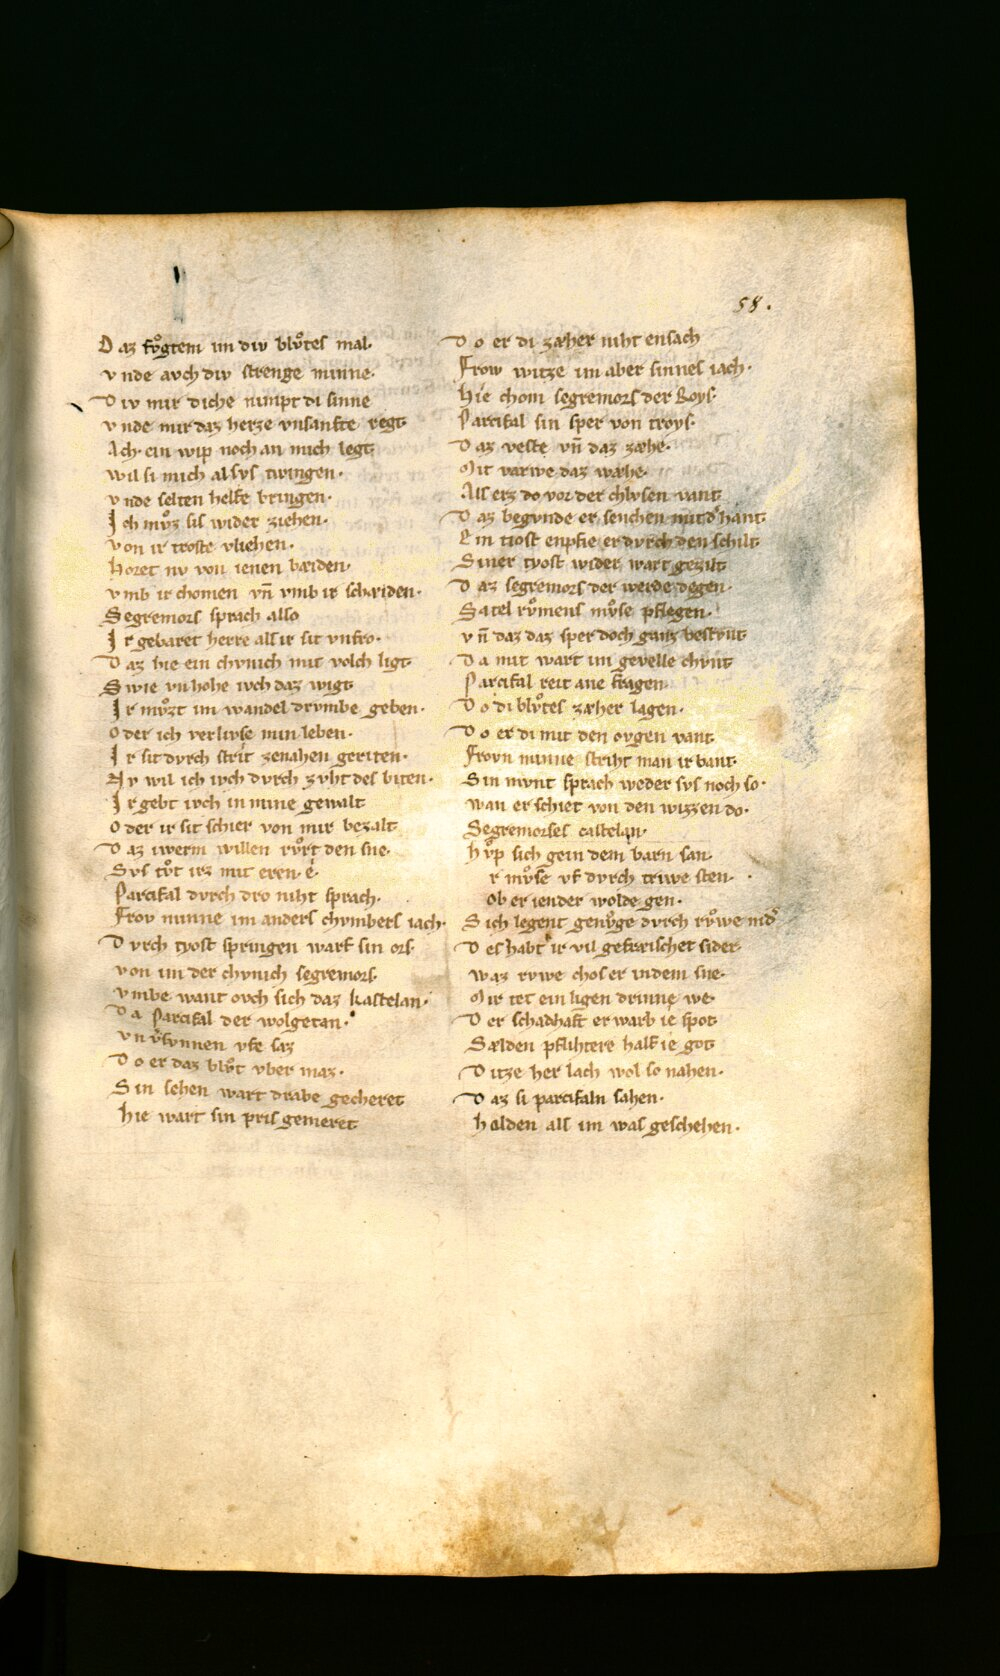 58.
Daz fvͦgtem im div blvͦtes mal·
vnde avch div strenge minne·
Div mir diche nimpt di sinne
vnde mir daz herze vnsanfte regt·
Ach ein wip noch an mich legt
wil si mich alsvs twingen·
vnde selten helfe bringen·
Ich mvͦz sis wider ziehen·
von ir troste vliehen·
horet nv von ienen bæiden·
vmb ir chomen vn̄ vmb ir schæiden·
Segremors sprach also
Ir gebaret herre als ir sit vnfro·
Daz hie ein chvnich mit volch ligt
Swie vnhohe ivch daz wigt
Ir mvͦzt im wandel drvmbe geben·
oder ich verlivse min leben·
Ir sit dvrch strit ze nahen geriten·
Ny wil ich ivch dvrch zvht des biten·
Ir gebt ivch in mine gewalt
oder ir sit schier von mir bezalt
Daz iwerm willen rvͦrt den sne·
Svs tvͦt irz mit eren é·
Parcifal dvrch dro niht sprach·
Frov minne im anders chvmbers iach·
Dvrch tyost springen warf sin ors·
von im der chvnich segremors·
vmbe want ovch sich daz kastelan·
Da Parcifal der wolgetan·
vnv̓sunnen vfe saz
Do er daz blvͦt vber maz·
Sin sehen wart drabe gecheret
hie wart sin pris gemeret
Do er di zæher niht ensach
Frow witze im aber sinnes iach·
hie chom segremors der Roys·
Parcifal sin sper von troys·
Daz veste vn̄ daz zæhe·
Mit varwe daz wæhe·
Als erz do vor der chlvsen vant
Daz begvnde er senchen mit d̓ hant·
Ein tiost enpfie er dvrch den schilt
Siner tyost wider wart gezilt
Daz segremors der werde degen·
Satel rvͦmens mvͦse pflegen·
vn̄ daz daz sper doch ganz bestvnt
Da mit wart im gevelle chvnt
Parcifal reit ane fragen·
Do di blvͦtes zæher lagen·
Do er di mit den ovgen vant
Frovn minne striht man ir bant·
Sin mvnt sprach weder svs noch so·
wan er schiet von den wizzen do·
Segremorses castelan·
hvͦp sich gein dem barn san·
r mvͦse vf dvrch trivwe sten·
ob er iender wolde gen·
Sich legent genvͦge dvrch rvͦwe nid̓
Des habt ir vil gefræischet sider·
waz rvwe chos er in dem sne·
Mir tet ein ligen drinne we·
Der schadhaft erwarb ie spot
Sælden pflihtere half ie got
Ditze her lach wol so nahen·
Daz si parcifaln sahen·
holden als im was geschehen·